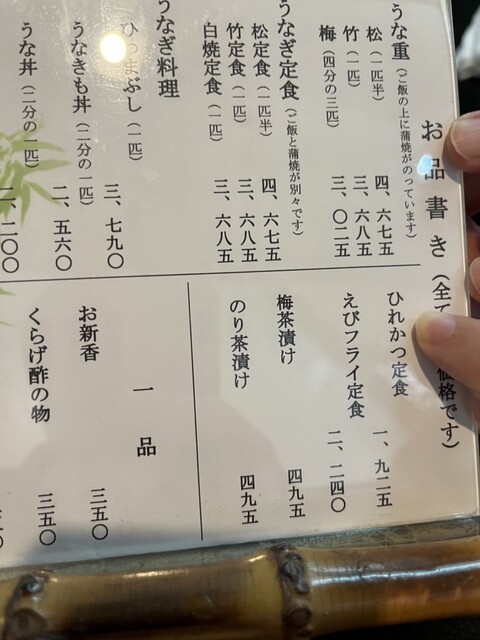 お品書き(全て
価格です)
うな重(ご飯の上に蒲焼がのっています)
松(一匹半) 四、六七五
竹(一匹) 三、六八五
梅(四分の三匹) 三、〇二五
うなぎ定食(ご飯と蒲焼が別々です)
松定食(一匹半) 四、六七五
竹定食(一匹) 三、六八五
白焼定食(一匹) 三、六八五
うなぎ料理
ひつまぶし(一匹) 三、七九〇
うなきも丼(二分の一匹) 二、五六〇
うな丼(二分の一匹) 二、二〇〇
ひれかつ定食 一、九二五
えびフライ定食 二、二四〇
梅茶漬け 四九五
のり茶漬け 四九五
一品
お新香 三五〇
くらげ酢の物 三五〇